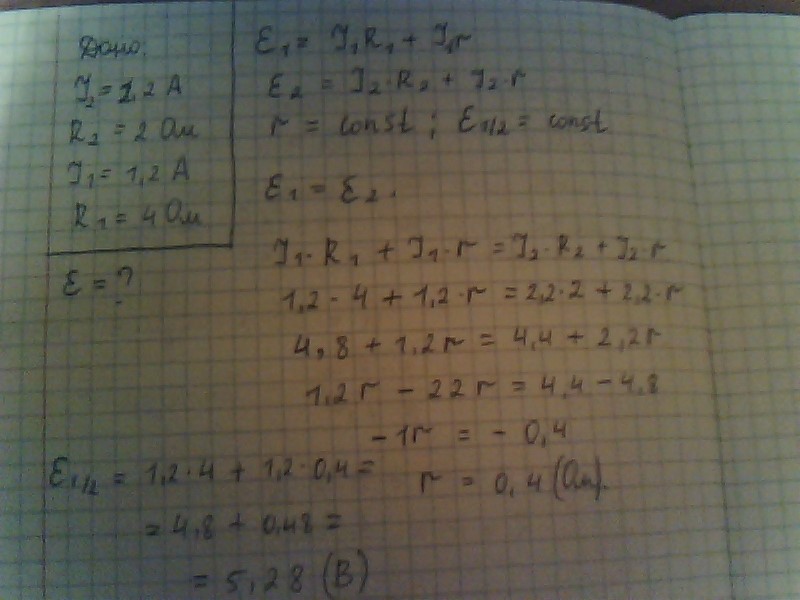 Дано:
I₂ = 2,2 А
R₂ = 2 Ом
I₁ = 1,2 А
R₁ = 4 Ом
ε = ?
ε₁ = I₁R₁ + I₁r
ε₂ = I₂·R₂ + I₂·r
r = const ; ε₁/₂ = const
ε₁ = ε₂.
I₁·R₁ + I₁·r = I₂·R₂ + I₂·r
1,2·4 + 1,2·r = 2,2·2 + 2,2·r
4,8 + 1,2r = 4,4 + 2,2r
1,2r - 22r = 4,4 - 4,8
-1r = - 0,4
r = 0,4 (Ом).
ε₁/₂ = 1,2·4 + 1,2·0,4 =
= 4,8 + 0,48 =
= 5,28 (В)